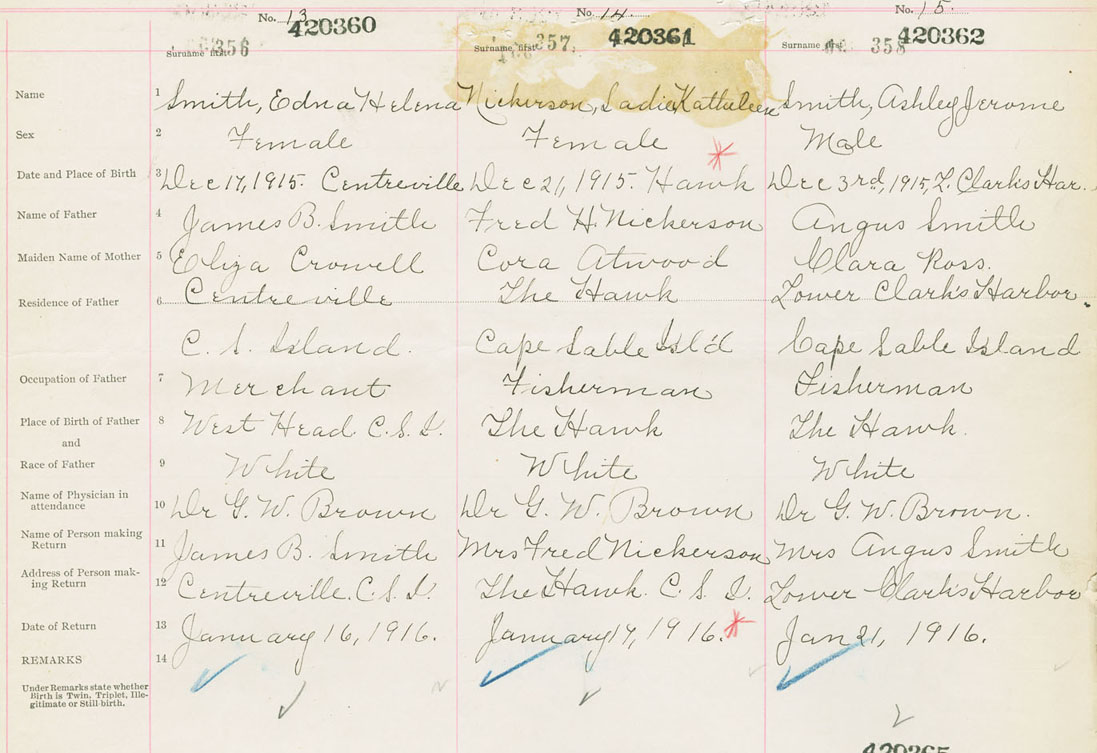 No. 13 No. 14 No. 15
420360 420361 420362
Surname first 356 Surname first 357 Surname first 358
Name 1 Smith, Edna Helena Nickerson, Sadie Kathleen Smith, Ashley Jerome
Sex 2 Female Female Male
Date and Place of Birth 3 Dec 17, 1915. Centreville Dec 21, 1915. Hawk Dec 3rd, 1915, L. Clark's Har.
Name of Father 4 James B. Smith Fred H. Nickerson Angus Smith
Maiden Name of Mother 5 Eliza Crowell Cora Atwood Clara Ross.
Residence of Father 6 Centreville The Hawk Lower Clark's Harbor.
C. S. Island. Cape Sable Isl'd Cape Sable Island
Occupation of Father 7 Merchant Fisherman Fisherman
Place of Birth of Father 8 West Head C. S. I. The Hawk The Hawk.
and
Race of Father 9 White White White
Name of Physician in
attendance 10 Dr G. W. Brown Dr G. W. Brown Dr G. W. Brown.
Name of Person making
Return 11 James B. Smith Mrs Fred Nickerson Mrs Angus Smith
Address of Person mak-
ing Return 12 Centreville. C. S. I. The Hawk. C. S. I. Lower Clark's Harbor
Date of Return 13 January 16, 1916. January 17, 1916. Jan 21, 1916.
REMARKS 14
Under Remarks state whether
Birth is Twin, Triplet, Ille-
gitimate or Still-birth.
420365